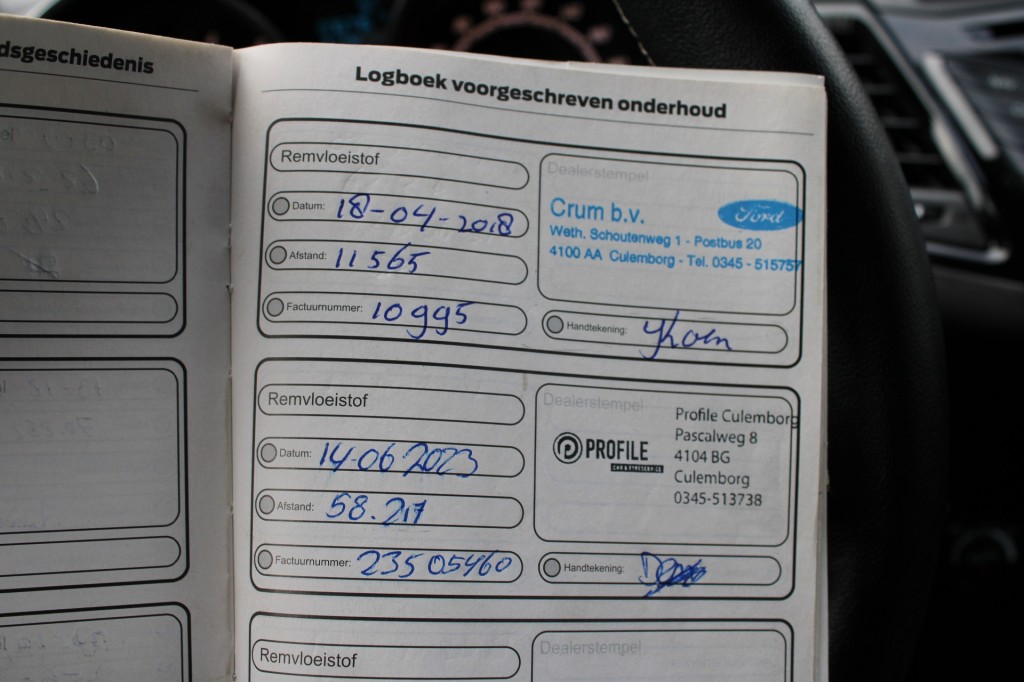 dsgeschiedenis
Logboek voorgeschreven onderhoud
Remvloeistof
Datum: 18-04-2018
Afstand: 11565
Factuurnummer: 10995
Dealerstempel
Crum b.v.
Ford
Weth. Schoutenweg 1 - Postbus 20
4100 AA Culemborg - Tel. 0345 - 515757
Handtekening:
Remvloeistof
Datum: 14-06 2023
Afstand: 58.217
Factuurnummer: 23505460
Dealerstempel
PROFILE
CAR & TYRESERVICE
Profile Culemborg
Pascalweg 8
4104 BG
Culemborg
0345-513738
Handtekening:
Remvloeistof
Dealerstempel